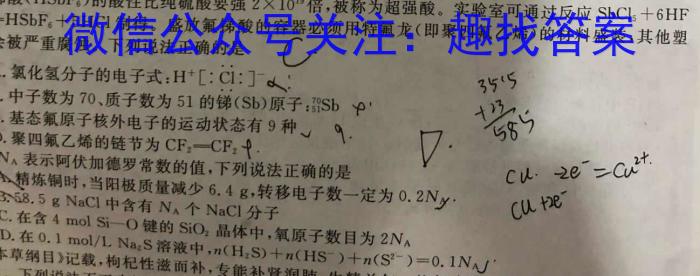 酸(HSbF₆)的酸性比纯硫酸要强 2×10 倍,被称为超强酸。实验室可通过反应 SbCl₅+6HF
=HSbF₆ 盛放氟锑酸的容器必须用特氟龙(即聚四氟乙烯)的材料盛装,其他塑
会被严重腐 下列说法正确的是
微信公众号关注:趣找答案
.氯化氢分子的电子式:H⁺[:Cl:]⁻
.中子数为 70、质子数为 51 的锑(Sb)原子:⁷⁰₅₁Sb
.基态氟原子核外电子的运动状态有 9 种 9.
.聚四氟乙烯的链节为 CF₂=CF₂
N_A 表示阿伏加德罗常数的值,下列说法正确的是
A.精炼铜时,当阳极质量减少 6.4 g,转移电子数一定为 0.2N
B.58.5 g NaCl 中含有 N_A 个 NaCl 分子
C.在含 4 mol Si—O 键的 SiO₂ 晶体中,氧原子数目为 2N_A
D.在 0.1 mol/L Na₂S 溶液中,n(H₂S)+n(HS⁻)+n(S²⁻)=0.1N_A
本草纲目》记载,枸杞性滋而补,专能补肾润肺
下列说法
35.5
+23
585
D.
Cu -2e⁻=Cu²⁺
Cu+2e⁻